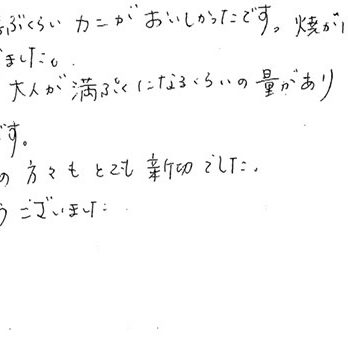 ぶくらい カニが おいしかったです。焼が
ました。
大人が 満ぷくになるくらいの 量があり
です。
の 方々も とても 新切でした。
うございました